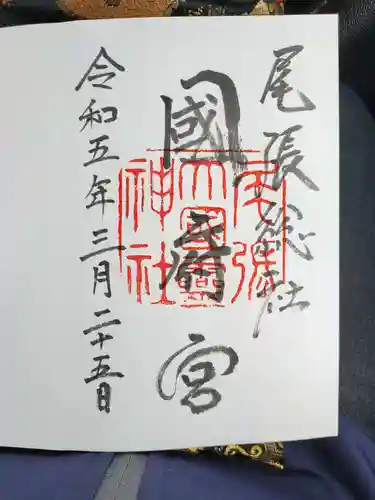 尾張総社
國府宮
尾張大國霊神社
令和五年三月二十五日